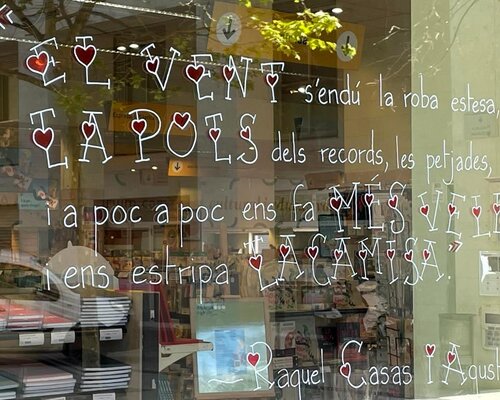 "EL VENT s'endú la roba estesa,
TAPOLS dels records, les petjades,
i a poc a poc ens fa MÉS VELL
i ens estripa LA CAMISA."
Raquel Casas i Agust